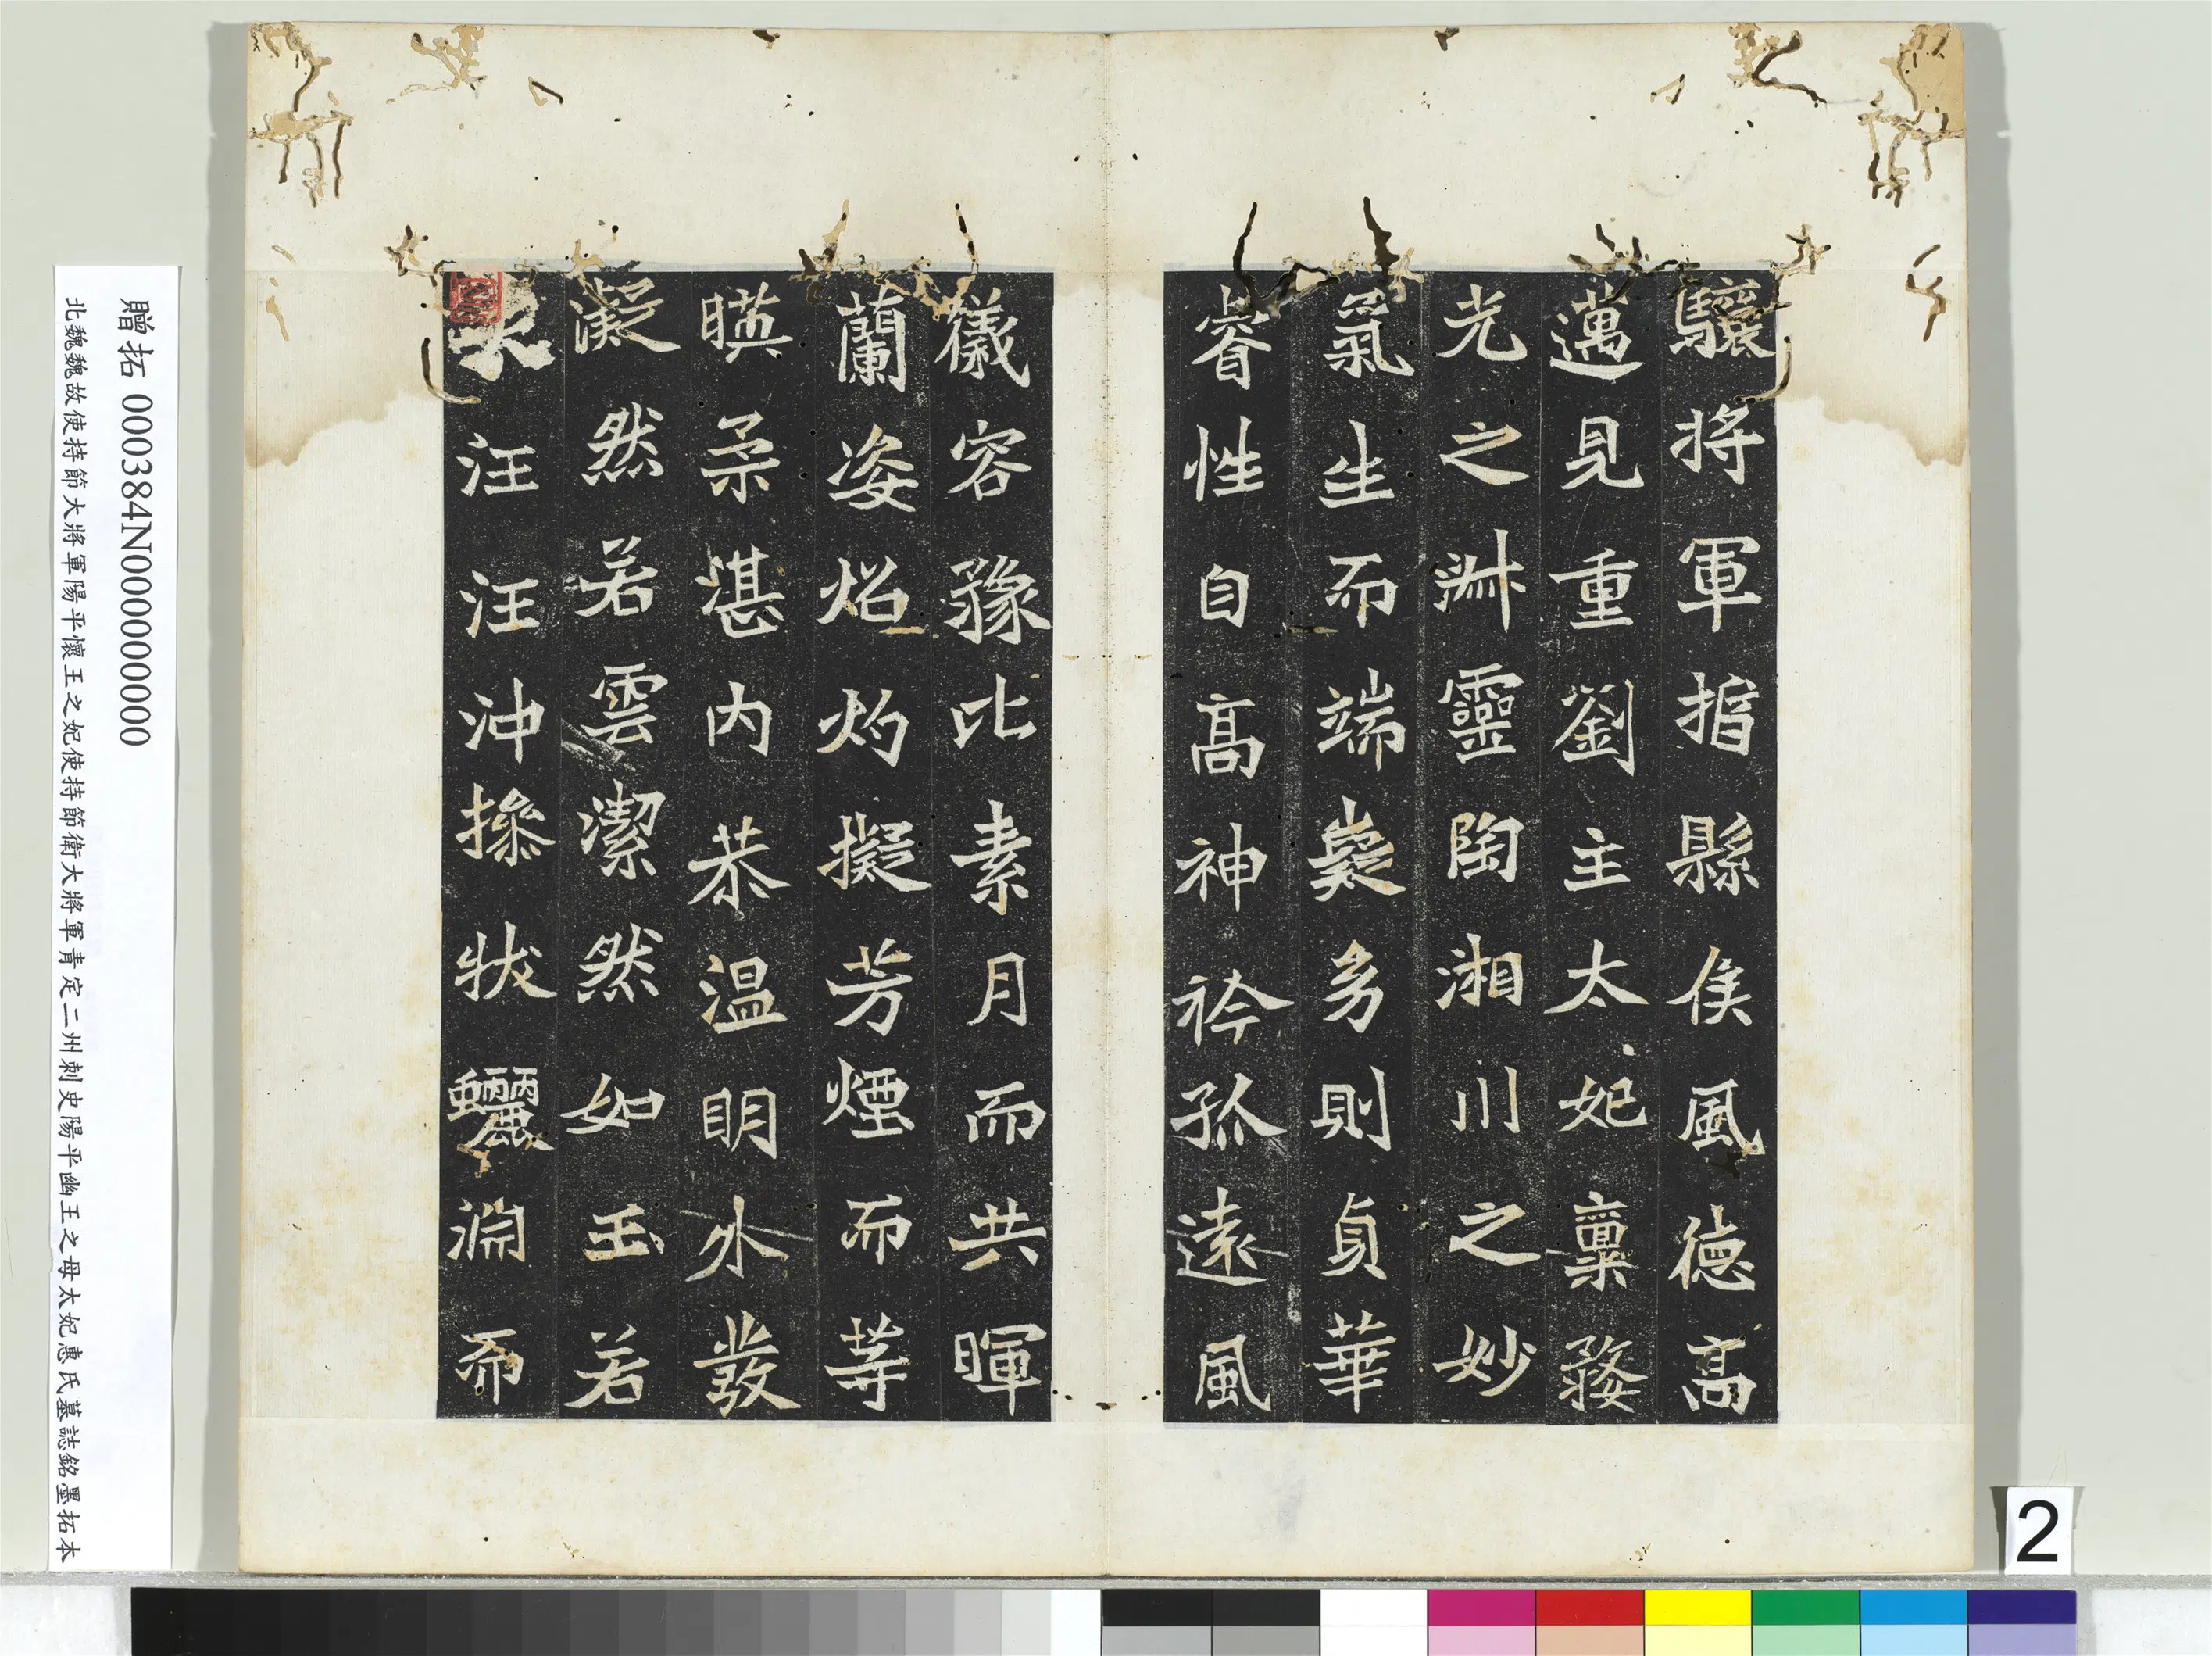 驤將軍揩縣侯風德高
邁見重劉主太妃稟婺
光之淋靈陶湘川之妙
氣生而端嶷多則貞華
睿性自高神衿孤遠風
儀容豫比素月而共暉
蘭姿炤灼擬芳煙而等
暎柔湛內恭溫明外發
凝然若雲潔然如玉若
汪汪沖操狀鱺淵而
贈拓 000384N000000000
北魏魏故使持節大將軍陽平懷王之妃使持節衛大將軍青定二州刺史陽平幽王之母太妃惠氏墓誌銘墨拓本
2